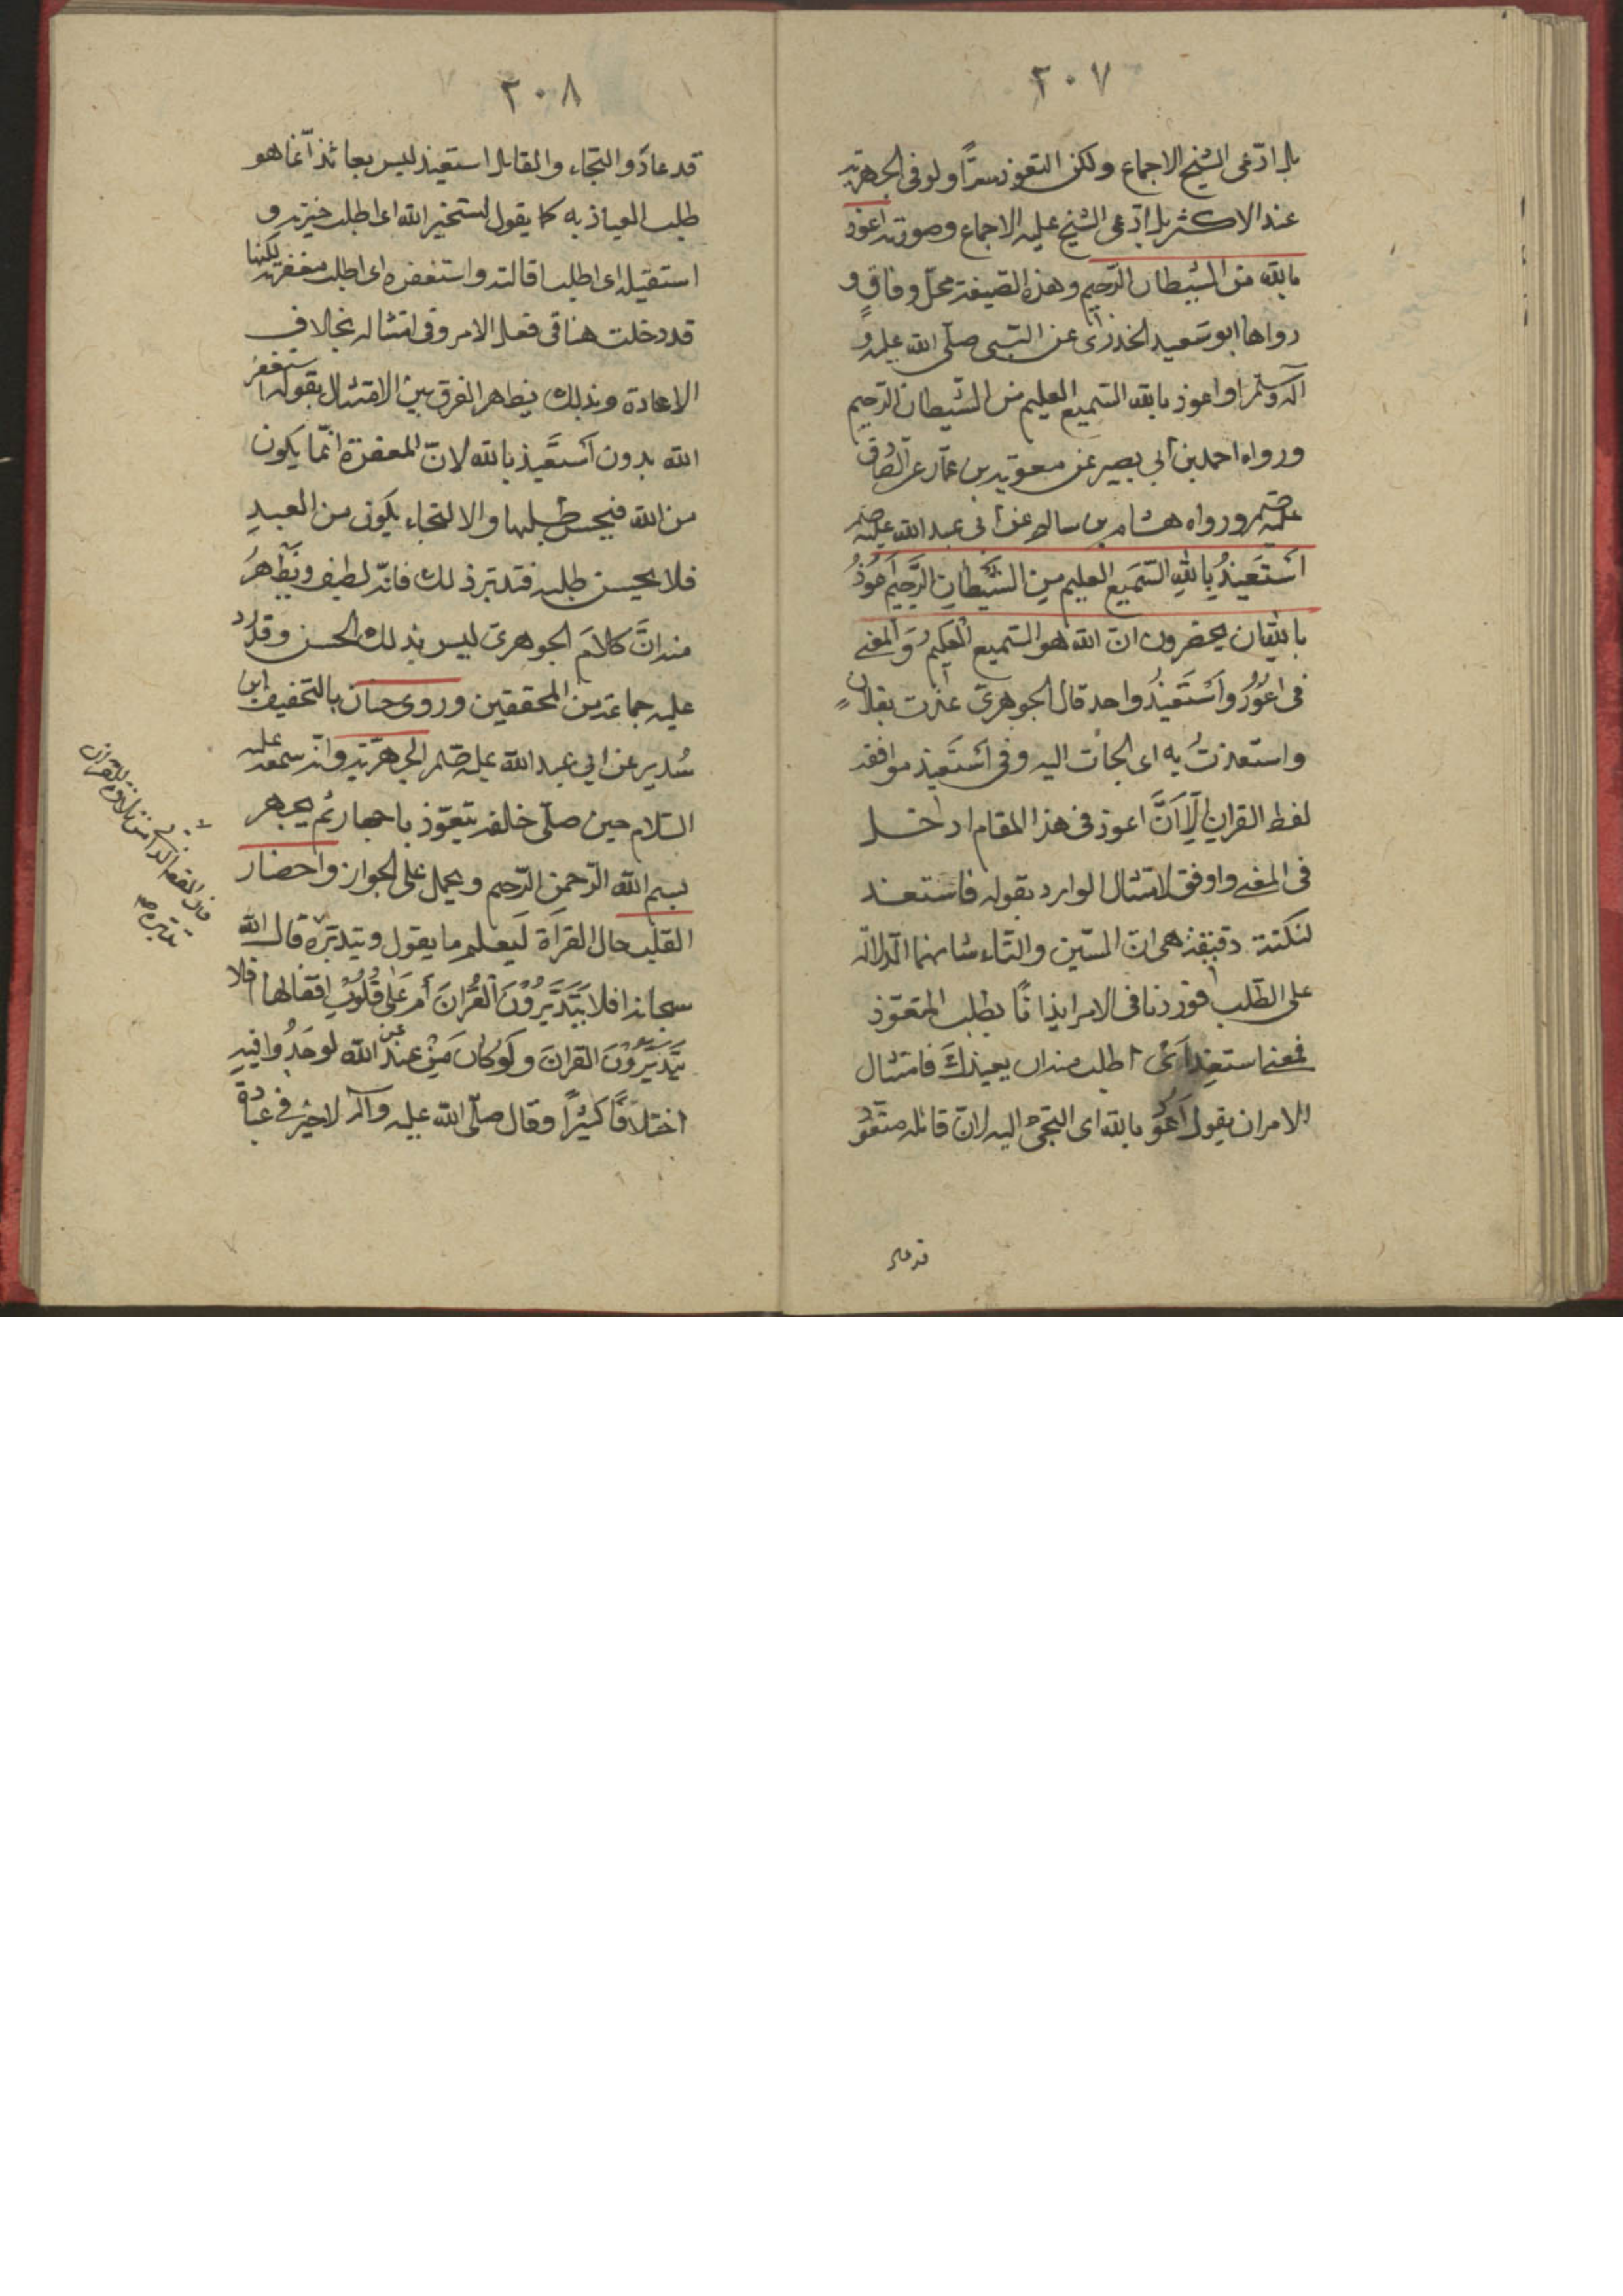 ٢٠٧
بل ادّعى الشيخ الاجماع ولكن التعوذ سرّاً ولو فى الجهرية
عند الاكثر بل ادّعى الشيخ عليه الاجماع وصورته اعوذ
بالله من الشيطان الرّجيم وهذه الصّيغة محلّ وفاقٍ و
رواها ابو سَعيد الخدرى عن النّبى صلّى الله عليه و
آله وسلم او اعوذ بالله السّميع العليم من الشّيطان الرّجيم
ورواه احمد بن ابى بصير عن معوية بن عمّار عن الصّادق
عليه ورواه هشام بن سالم عن ابى عبد الله عليه
اَسْتَعيذُ بِاللهِ السَّمَيع العليم مِنَ الشَّيْطانِ الرَّجيم اَعُوذُ
بالله ان يحضرون ان الله هو السّميع العليم والمعنى
فى اعُوذُ واَسْتَعيذُ واحد قال الجوهرىّ عذت بفلانٍ
واستعذتُ به اى لجأت اليه وفى اَسْتَعيذ موافقة
لفظ القرآن اِلّا اَنَّ اعوذ فى هذا المقام ادخل
فى المعنى واوفق لامتثال الوارد بقوله فاستعذ
لنكتة دقيقة هى ان السّين والتّاء شانهما الدّلالة
على الطّلب فوردتا فى الامر ايذانًا بطلب التعوّذ
فمعنى استعذ اَىْ اطلب منه ان يعيذكَ فامتثال
الامر ان يقول اَعُوذُ بالله اى التجئ اليه لانّ قائله متعوّذ
قد عاذ
٢٠٨
قد عاذَ و التجاء والقايل استعيذ ليس بعائذ انّما هو
طلب العياذ به كما يقول استخير الله اى اطلب خيرته و
استقيله اى اطلب اقالته واستغفره اى اطلب مغفرته لكنها
قد دخلت هنا فى فعل الامر وفى امتثاله بخلاف
الاعاذة وبذلك يظهر الفرق بين الامتثال بقوله استغفرُ
الله بدون اَسْتَعيذ بالله لانّ المغفرة انّما يكون
من الله فيحسن طلبها والالتجاء يكون من العبدِ
فلا يحسن طلبه فتدبّر ذلك فانّه لطيف ويَظْهرُ
منه انَّ كلامَ الجوهرىّ ليس بذلك الحسن وقد ردّ
عليه جماعة من المحققين وروى حنان بالتخفيف ابن
سُدير عن ابى عبد الله عليه الجهرية وانّه سمعه عليه
السّلام حين صلّى خلفه يتعوّذ باجهار ثم يجهر
ببسم الله الرّحمن الرّحيم ويحمل على الجواز واحضار
القلب حال القرآءة لَيعلم ما يقول ويتدبّره قال الله
سبحانه افلا يَتَدَبَّرُونَ القُرْانَ أمْ عَلى قُلُوبٍ اقفالها افلا
يَتَدَبَّرُونَ القرانَ ولَوْ كانَ مِنْ عِنْدِ غير الله لوَجَدُوا فيهِ
اختلافًا كثيرًا وقال صلّى الله عليه وآله لا خير فى عبادة
فان القصد الذاتى من تلاوة القرآن
تدبّره